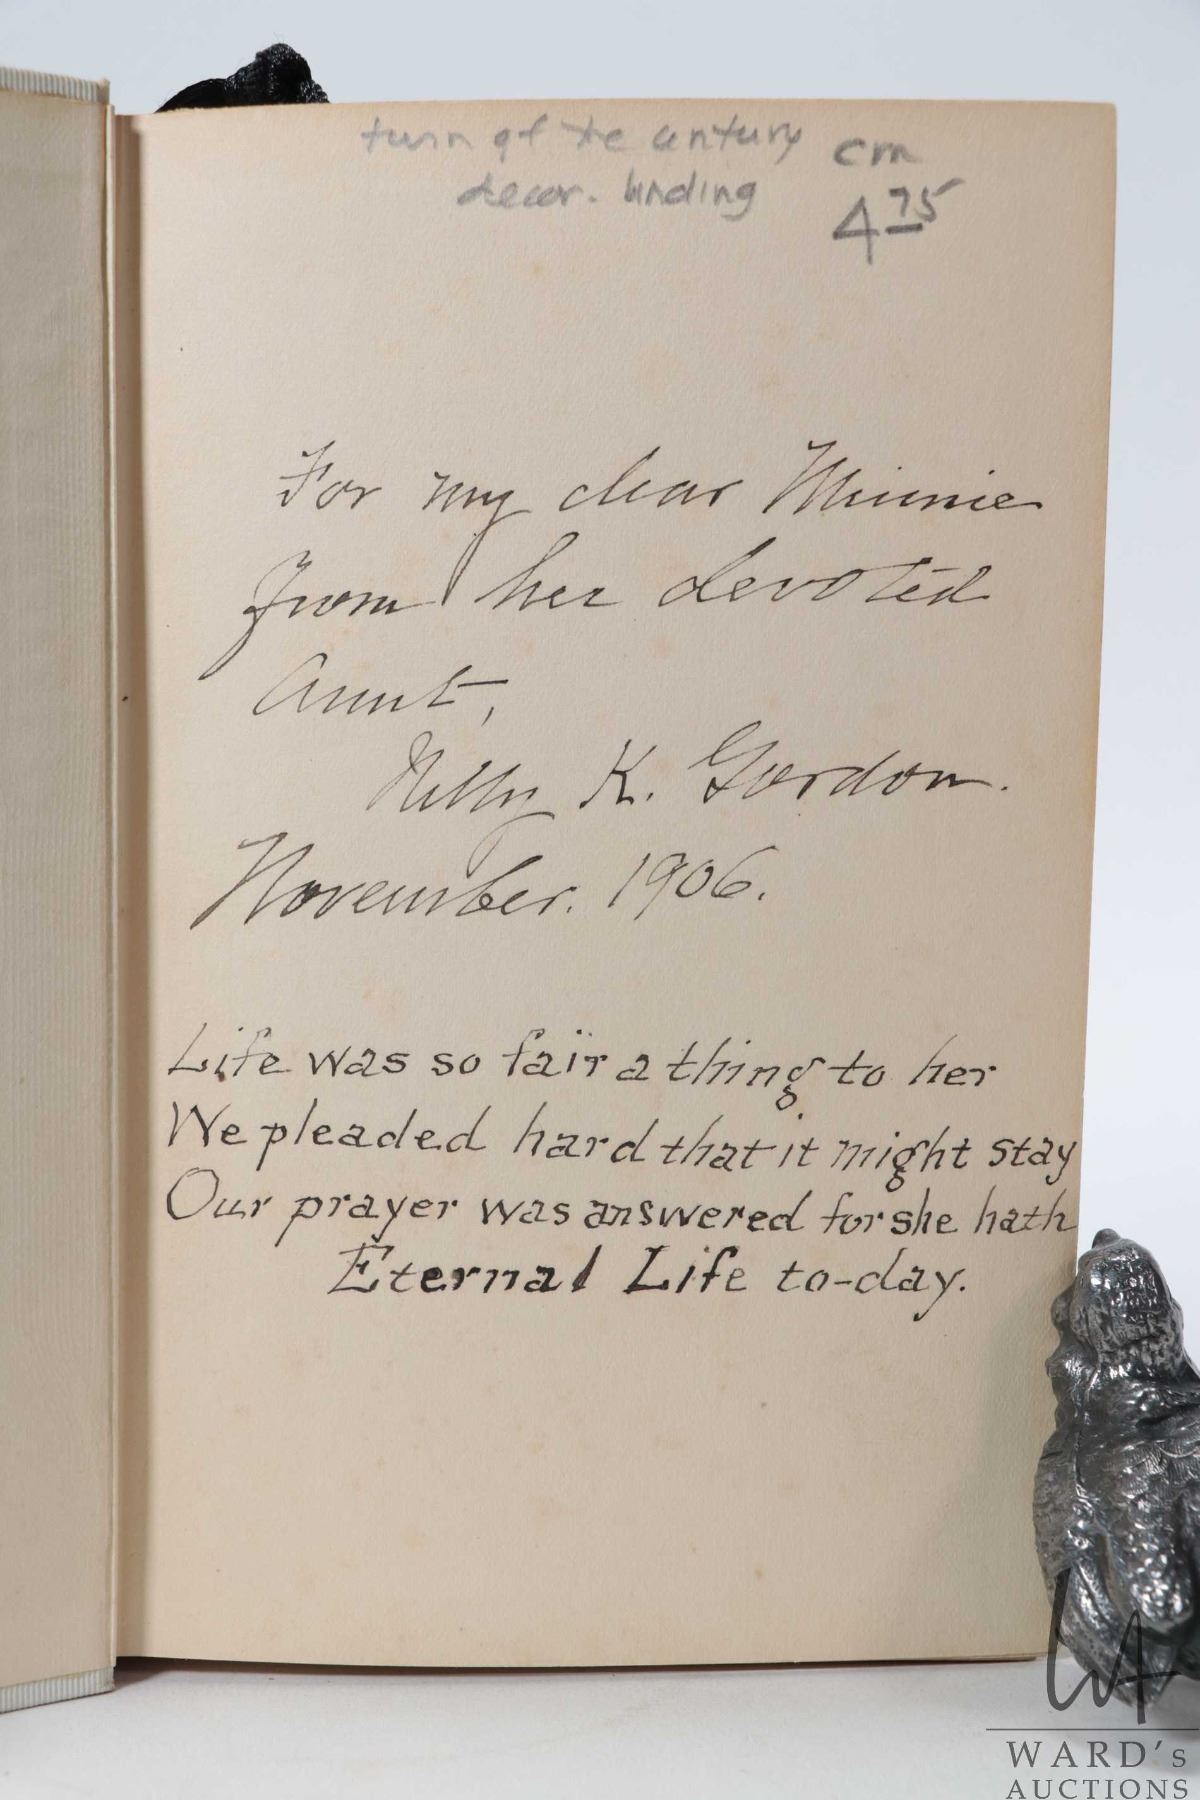 turn of the century
decor. binding
cm
4 75
For my dear Minnie
from her devoted
Aunt,
Nelly K. Gordon.
November. 1906.
Life was so fair a thing to her
We pleaded hard that it might stay
Our prayer was answered for she hath
Eternal Life to-day.
WA
WARD's
AUCTIONS